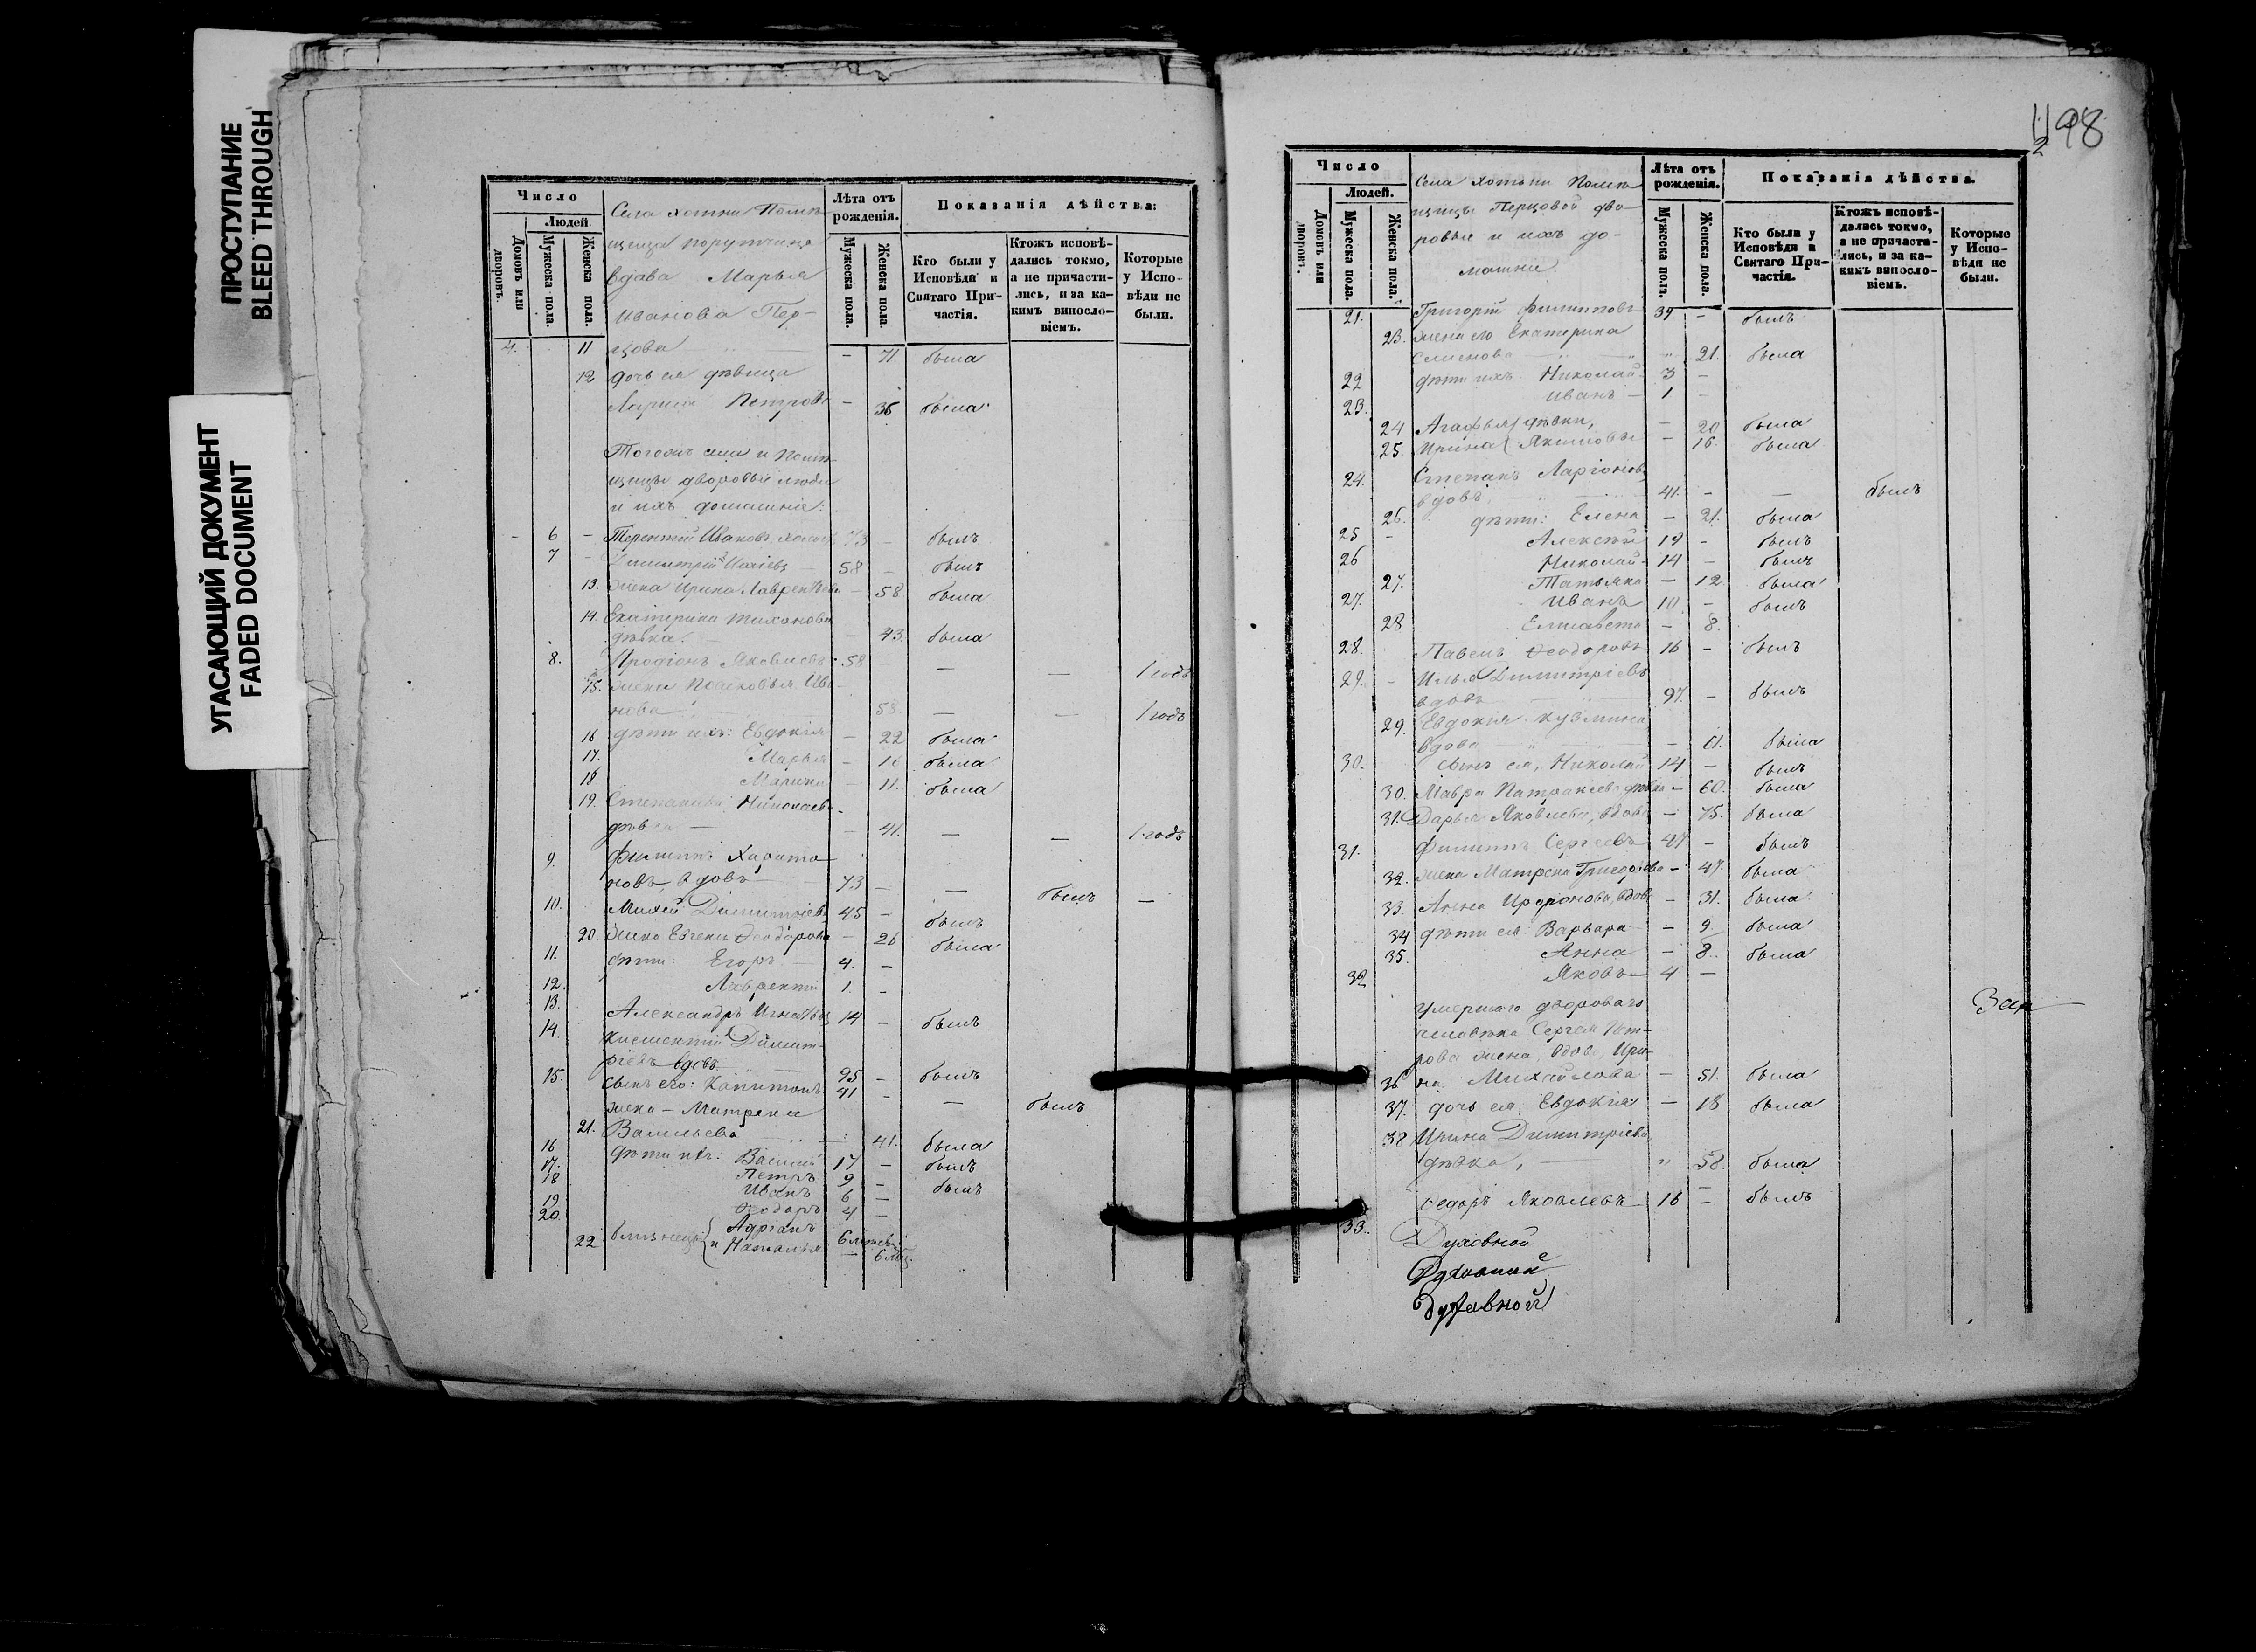 ПРОСТУПАНИЕ
BLEED THROUGH
УГАСАЮЩИЙ ДОКУМЕНТ
FADED DOCUMENT
Число
Людей
Домовъ или дворовъ.
Мужеска пола.
Женска пола.
Села Хотьни Помѣ-
щица порутчица
вдова Марья
Иванова Пер-
Лѣта отъ рожденія.
Мужеска пола.
Женска пола.
Показанія дѣйства:
Кто были у Исповѣди и Святаго Причастія.
Ктожъ исповѣдались токмо, а не причастились, и за какимъ винословіемъ.
Которые у Исповѣди не были.
4. 11 цова - 71 была
12 дочь ея дѣвица
Петрова - 36 была
Тогожъ села и Помѣ-
щицы дворовыи люди
и ихъ домашніе:
- 6 - Терентій Ивановъ 73 - былъ
7 - Димитрій 58 - былъ
13. жена Ирина Лаврентьева - 58 была
14. Екатерина Тихонова
дѣвка. - 43. была
8. Яковлевъ 58 - — — 1 годъ
15. жена Ива-
нова 58 — — 1 годъ
16 дѣти ихъ: Евдокія - 22 была
17. Марья - 16 была
18 Марина - 11. была
19. Степанида Николаева
дѣвка — - 41. — — 1 годъ
9. Филиппъ Харито-
новъ, вдовъ 73 - — былъ —
10. Михей Димитріевъ 45 - былъ
20. жена Евгенія Ѳеодорова - 26 была
11. дѣти: Егоръ 4. -
12. Лаврентій 1. -
13. Александръ Игнатьевъ 14 - былъ
14. Климентій Димит-
ріевъ вдовъ 95 - былъ
15. сынъ его: Капитонъ 41 - — былъ
жена - Матрена
21. Васильева 41. была
16 дѣти ихъ: Василій 17 - былъ
17. Петръ 9 - былъ
18 Иванъ 6 -
19 Ѳеодоръ 4 -
20 близнецы { Адріанъ
22 и Наталья
1198
2
Число
Людей.
Домовъ или дворовъ.
Мужеска пола.
Женска пола.
Села Хотьни Помѣ-
щицы Перцовой дво-
ровые и ихъ до-
машніе.
Лѣта отъ рожденія.
Мужеска пола.
Женска пола.
Показанія дѣйства.
Кто были у Исповѣди и Святаго Причастія.
Ктожъ исповѣдались токмо, а не причастились, и за какимъ винословіемъ.
Которые у Исповѣди не были.
21. Григорій Филиповъ 39 - былъ
23. жена его Екатерина
Семенова 21. была
22 дѣти ихъ Николай 3 -
23. Иванъ - 1 -
24 Агафья { дѣвки, - 20 была
25. Ирина { Якимовы - 16. была
24. Степанъ Ларіоновъ
вдовъ 41. - — былъ
26. дѣти: Елена - 21. была
25 - Алексѣй 19 - былъ
26 Николай 14 - былъ
27. Татьяна - 12 была
27. Иванъ 10 - былъ
28 Елисавета - 8.
28. Павелъ Ѳеодоровъ 16 - былъ
29. - Илья Димитріевъ
вдовъ 97. - былъ
29. Евдокія Кузмина
вдова — - 61. была
30. сынъ ея, Николай 14 - былъ
30. Мавра дѣвка - 60. была
31. Дарья Яковлева, вдова - 75. была
31. Филиппъ Сергеевъ 47 - былъ
32. жена Матрена Григорьева - 47. была
33. Анна вдова - 31. была
34 дѣти ея: Варвара - 9 была
35. Анна - 8. была
32 Яковъ 4 -
Умершаго двороваго
человѣка Сергея Пет-
рова жена, вдова, Ири-
36 на Михайлова - 51. была
37. дочь ея Евдокія - 18 была
38 Ирина Димитріева
дѣвка, 58. была
Ѳедоръ Яковлевъ 16 - былъ
33.
Духовной
Духовной